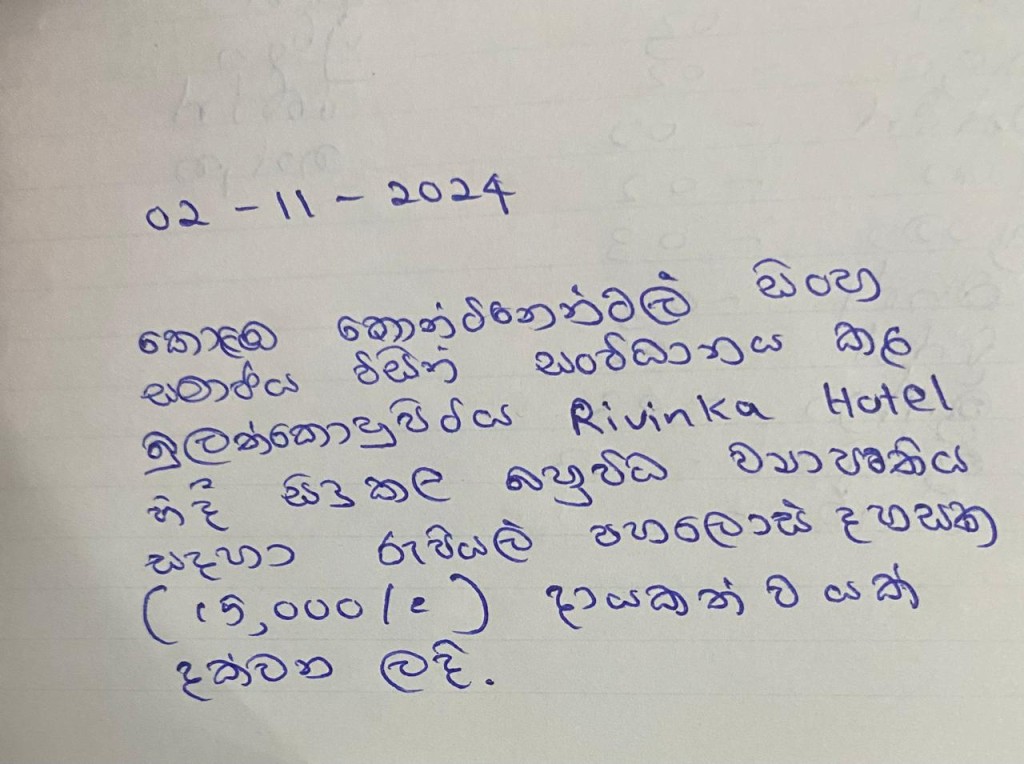 02 - 11 - 2024
කොළඹ කොන්ටිනෙන්ටල් සිංහ
සමාජය විසින් සංවිධානය කල
ඉලුක්කොවුවිටිය Rivinka Hotel
හි දී සිදු කල බහුවිධ ව්‍යාපෘතිය
සදහා රුපියල් පහලොස් දහසක
(15,000/=) දායකත් ව යක්
දක්වන ලදි.